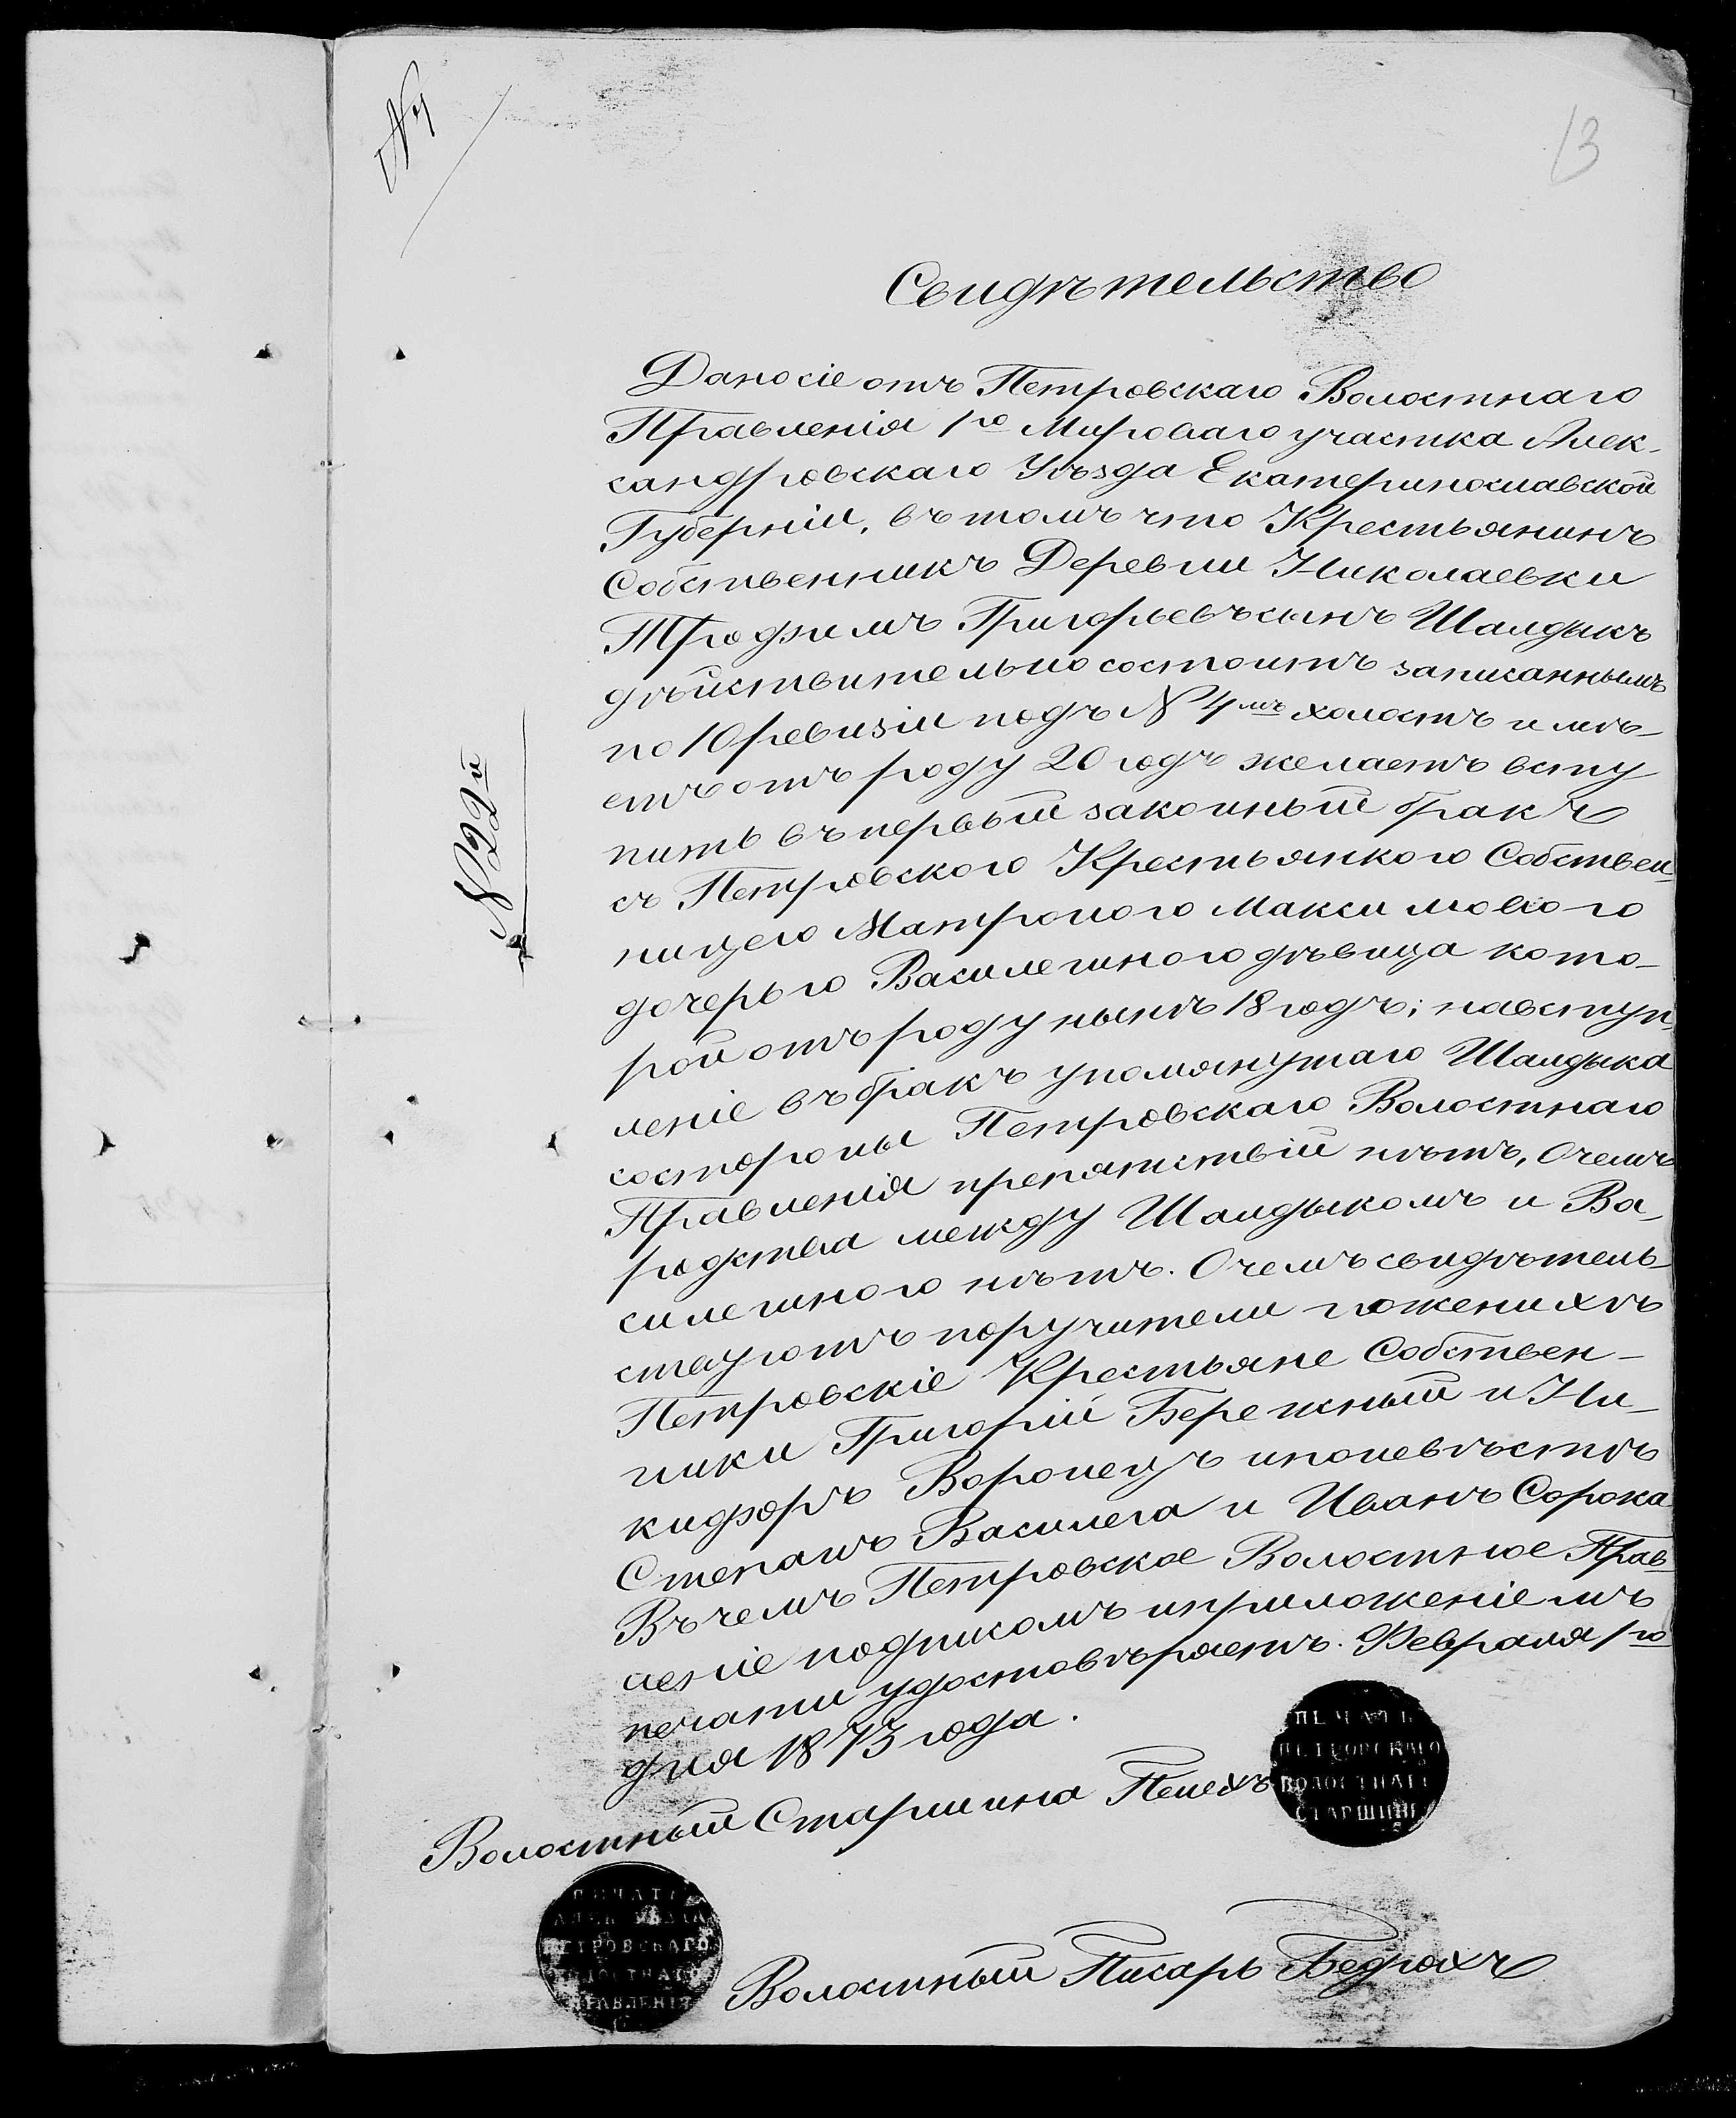 № 4
13
Свидѣтельство
Дано сіе отъ Петровскаго Волостнаго
Правленія 1го Мироваго участка Алек-
сандровскаго Уѣзда Екатеринославской
Губерніи, въ томъ что Крестьянинъ
Собственникъ Деревни Николаевки
Трофимъ Григорьевъ сынъ Шалдыкъ
дѣйствительно состоитъ записаннымъ
по 10 ревизіи подъ № 4мъ холостъ имѣ-
етъ отъ роду 20 годъ желаетъ всту
пить въ первый законный бракъ
съ Петровского Крестьянкою Собствен-
ницею Матроною Максимовою
дочерью Василегиною дѣвица кото-
рой отъ роду нынѣ 18 годъ; на вступ-
леніе въ бракъ упомянутаго Шалдыка
со стороны Петровскаго Волостнаго
Правленія препятствій нѣтъ, О чемъ
родства между Шалдыкомъ и Ва-
силегиною нѣтъ. О чемъ свидѣтель-
ствуютъ поручители по женихѣ
Петровскіе Крестьяне Собствен-
ники Григорій Бережный и Ни-
кифоръ Воронецъ и по невѣстѣ
Степанъ Василега и Иванъ Сорока
Въ чемъ Петровское Волостное Прав-
леніе подписомъ и приложеніемъ
печати удостовѣряетъ. Февраля 1го
дня 1873 года.
№ 22й
Волостный Старшина Пелехъ
ПЕЧАТЬ
ПЕТРОВСКАГО
ВОЛОСТНАГО
СТАРШИНЫ
ПЕЧАТЬ
ПЕТРОВСКАГО
ВОЛОСТНАГО
ПРАВЛЕНІЯ
Волостный Писарь Бедрохъ